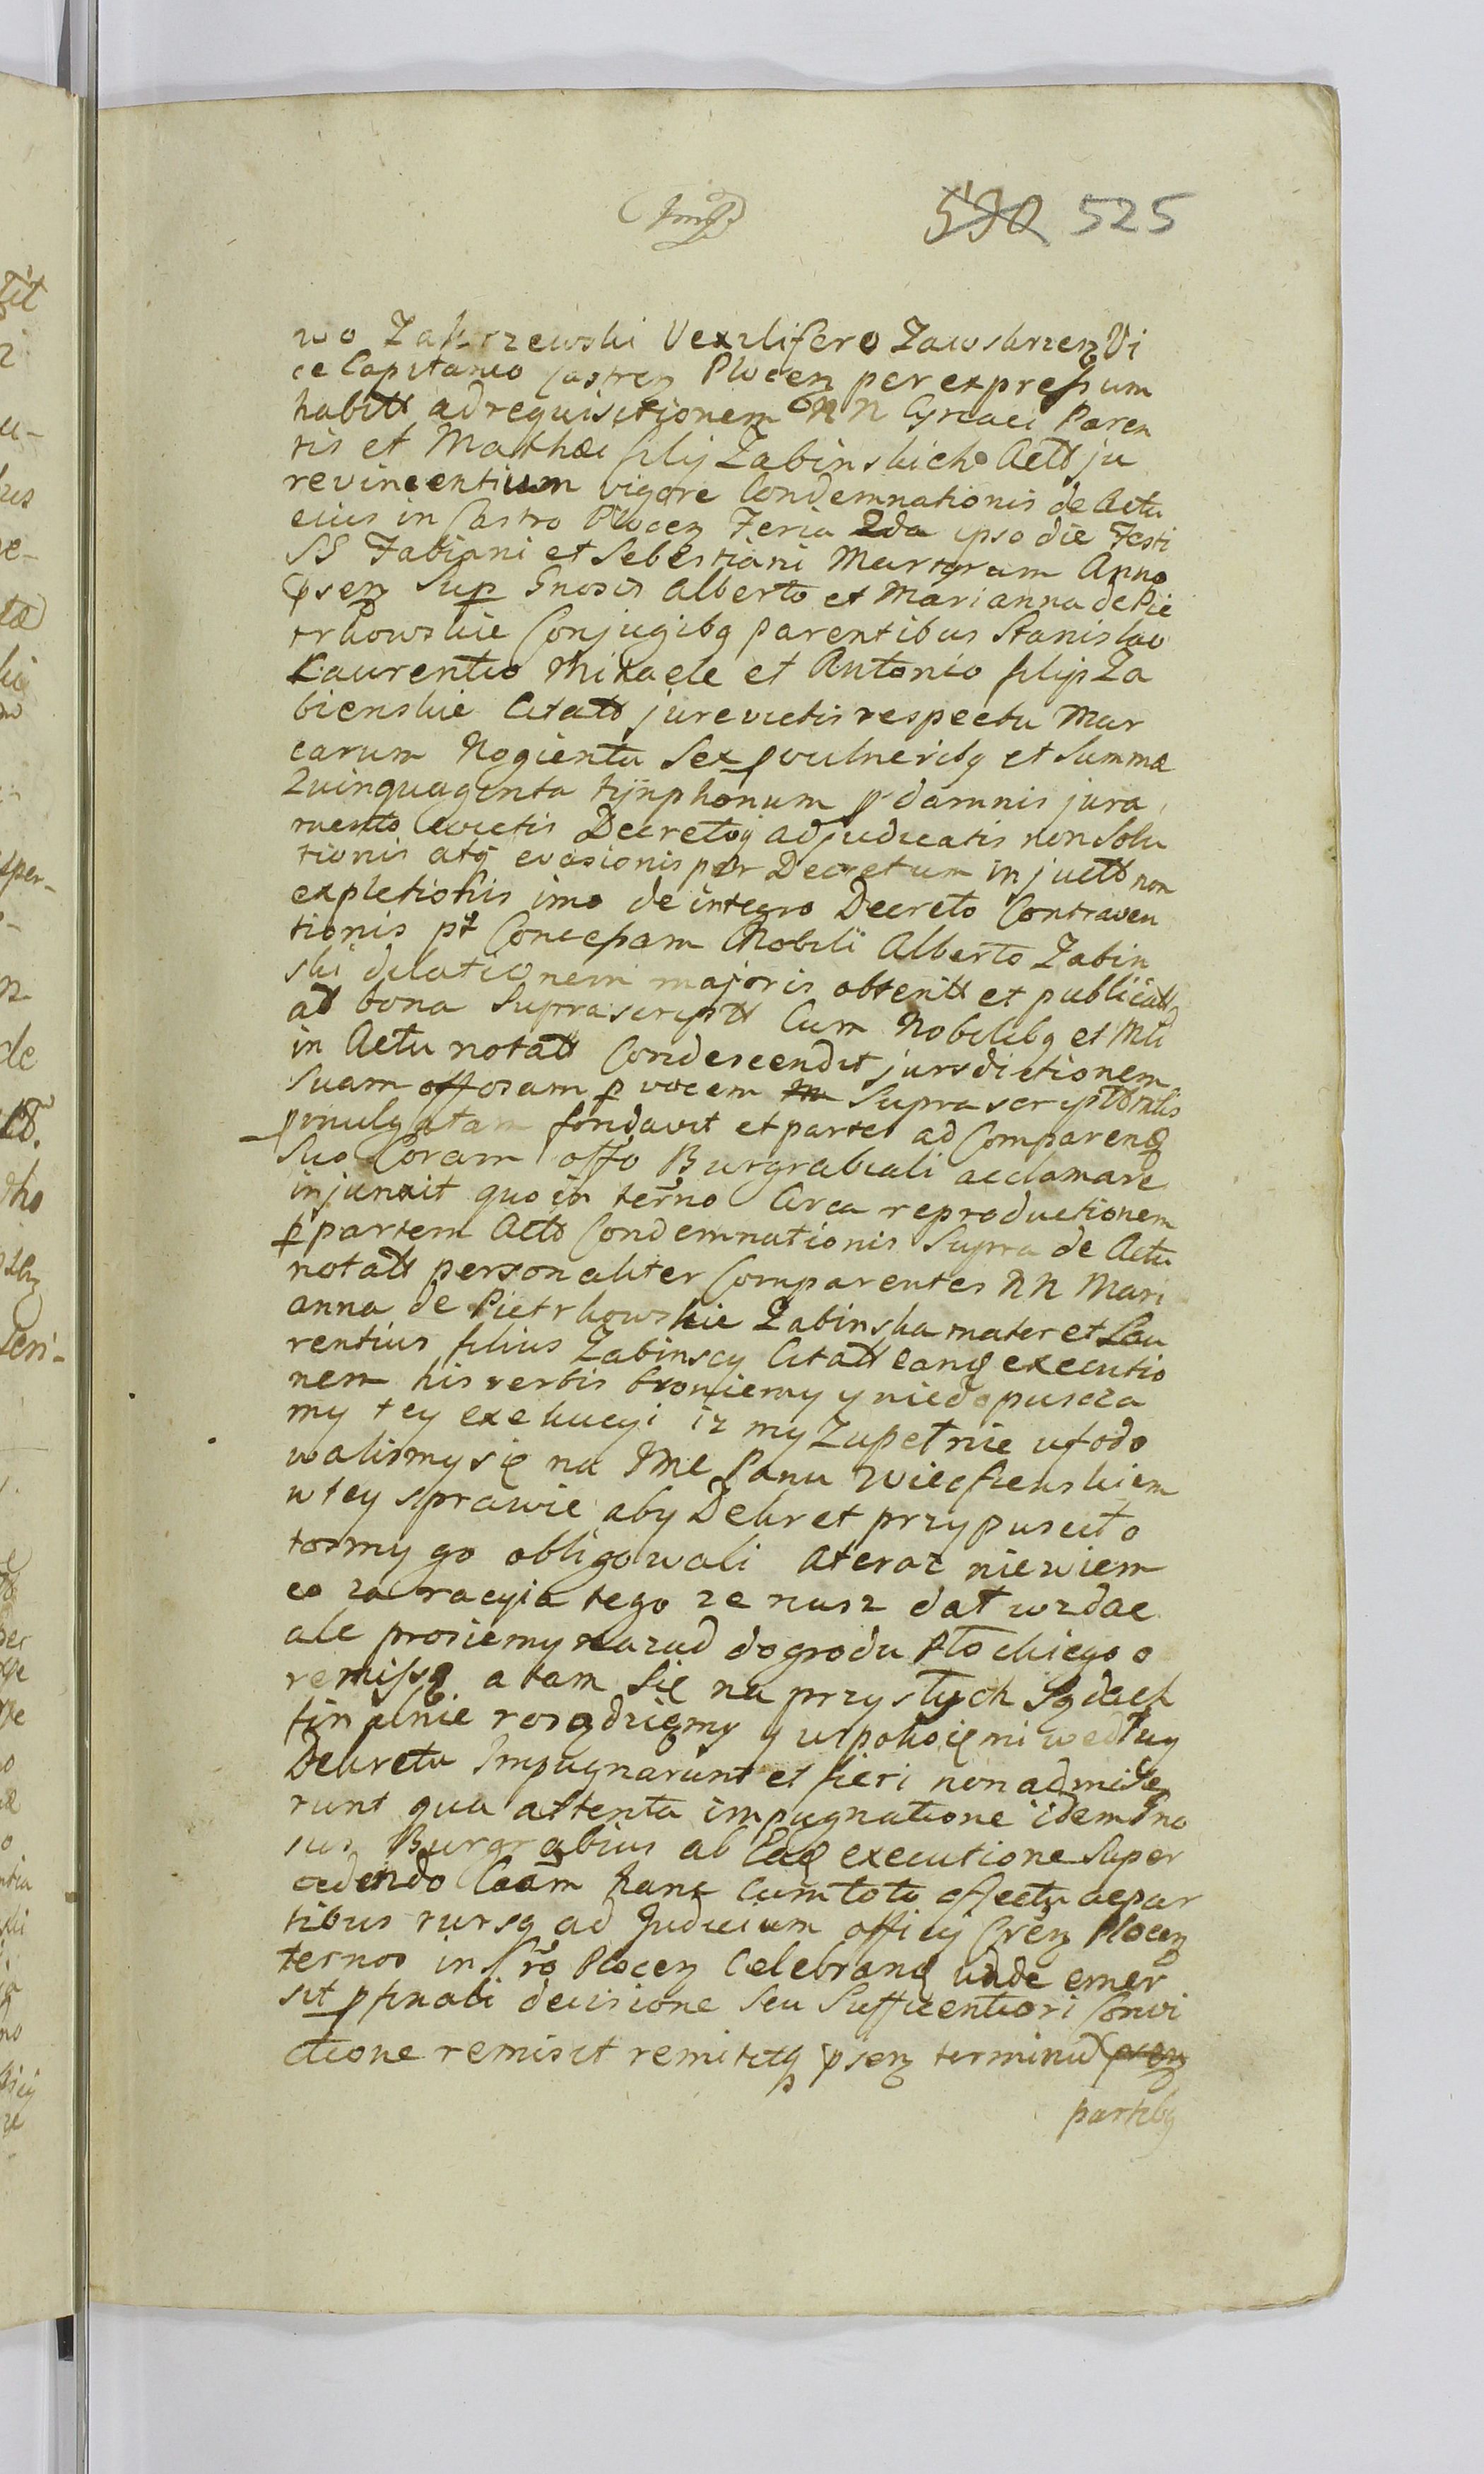 590 525
wo Zakrzewski Vexilifero Zawskrzen Vi
ce Capitaneo Castren Plocen per expressum
habitt ad requisitionem NN Cyriaci Paren
tis et Mathæi filij Zabinskich Actt ju
revincentium vigore Condemnationis de Actu
eius in Castro Plocen Feria 2da ipso die Festi
SS Fabiani et Sebestiani Martyrum Anno
psen Sup Gnosis Alberto et Marianna de Pie
trkowskie Conjugibq parentibus Stanislao
Laurentio Mikaele et Antonio filijs Za
bienskie Citatt jurevictis respectu Mar
carum Nogienta Sex p vulneribq et Summæ
Quinquaginta tijnphonum p damnis jura
mento evictis Decretoq adjudicatis non Solu
tionis atq evasionis per Decretum injuctt non
expletionis imo de integro Decreto Contraven
tionis pt Concessam Nobili Alberto Zabin
ski dilationem majoris obtentt et publicatt
ad bona Suprascriptt Cum Nobilibq et Mti
in Actu notatt Condescendit jursdictionem
Suam offosam p vocem Suprascriptt Mtis
pmulgatam fondavit et partes ad Comparend
Suo Coram offo Burgrabiali acclamare
injunxit quo in terno Circa reproductionem
p partem Actt Condemnationis Supra de Actu
notatt personaliter Comparentes NN Mari
anna de Pietrkowskie Zabinska mater et Lau
rentius filius Zabinscy Citatt eand executio
nem his verbis broniemy y niedopuscza
my tey exekucyi iz my Zupełnie ufodo
walismy się na JMC Panu Wiecfienskiem
w tey sprawie aby Dekret przypuscił o
tosmy go obligowali Ateraz niewiem
co za racyia tego ze nusz dał wzdac
ale prosiemy nazad dogrodu Płockiego o
remissę a tam Się na przyszłych Sądach
finalnie rosądzięmy y uspokoięmi według
Dekretu Impugnarunt et fieri non admise
runt qua attenta impugnatione idem Gno
sus Burgrabius ab Ead executione Super
cedendo Caam hanc Cum toto effectu ac par
tibus rursq ad Judicium officij Cren Plocen
ternos in Cro Plocen Celebrand unde emer
sit p finali decisione Seu Sufficientiori Convi
ctione remisit remititq psen terminu
partibq